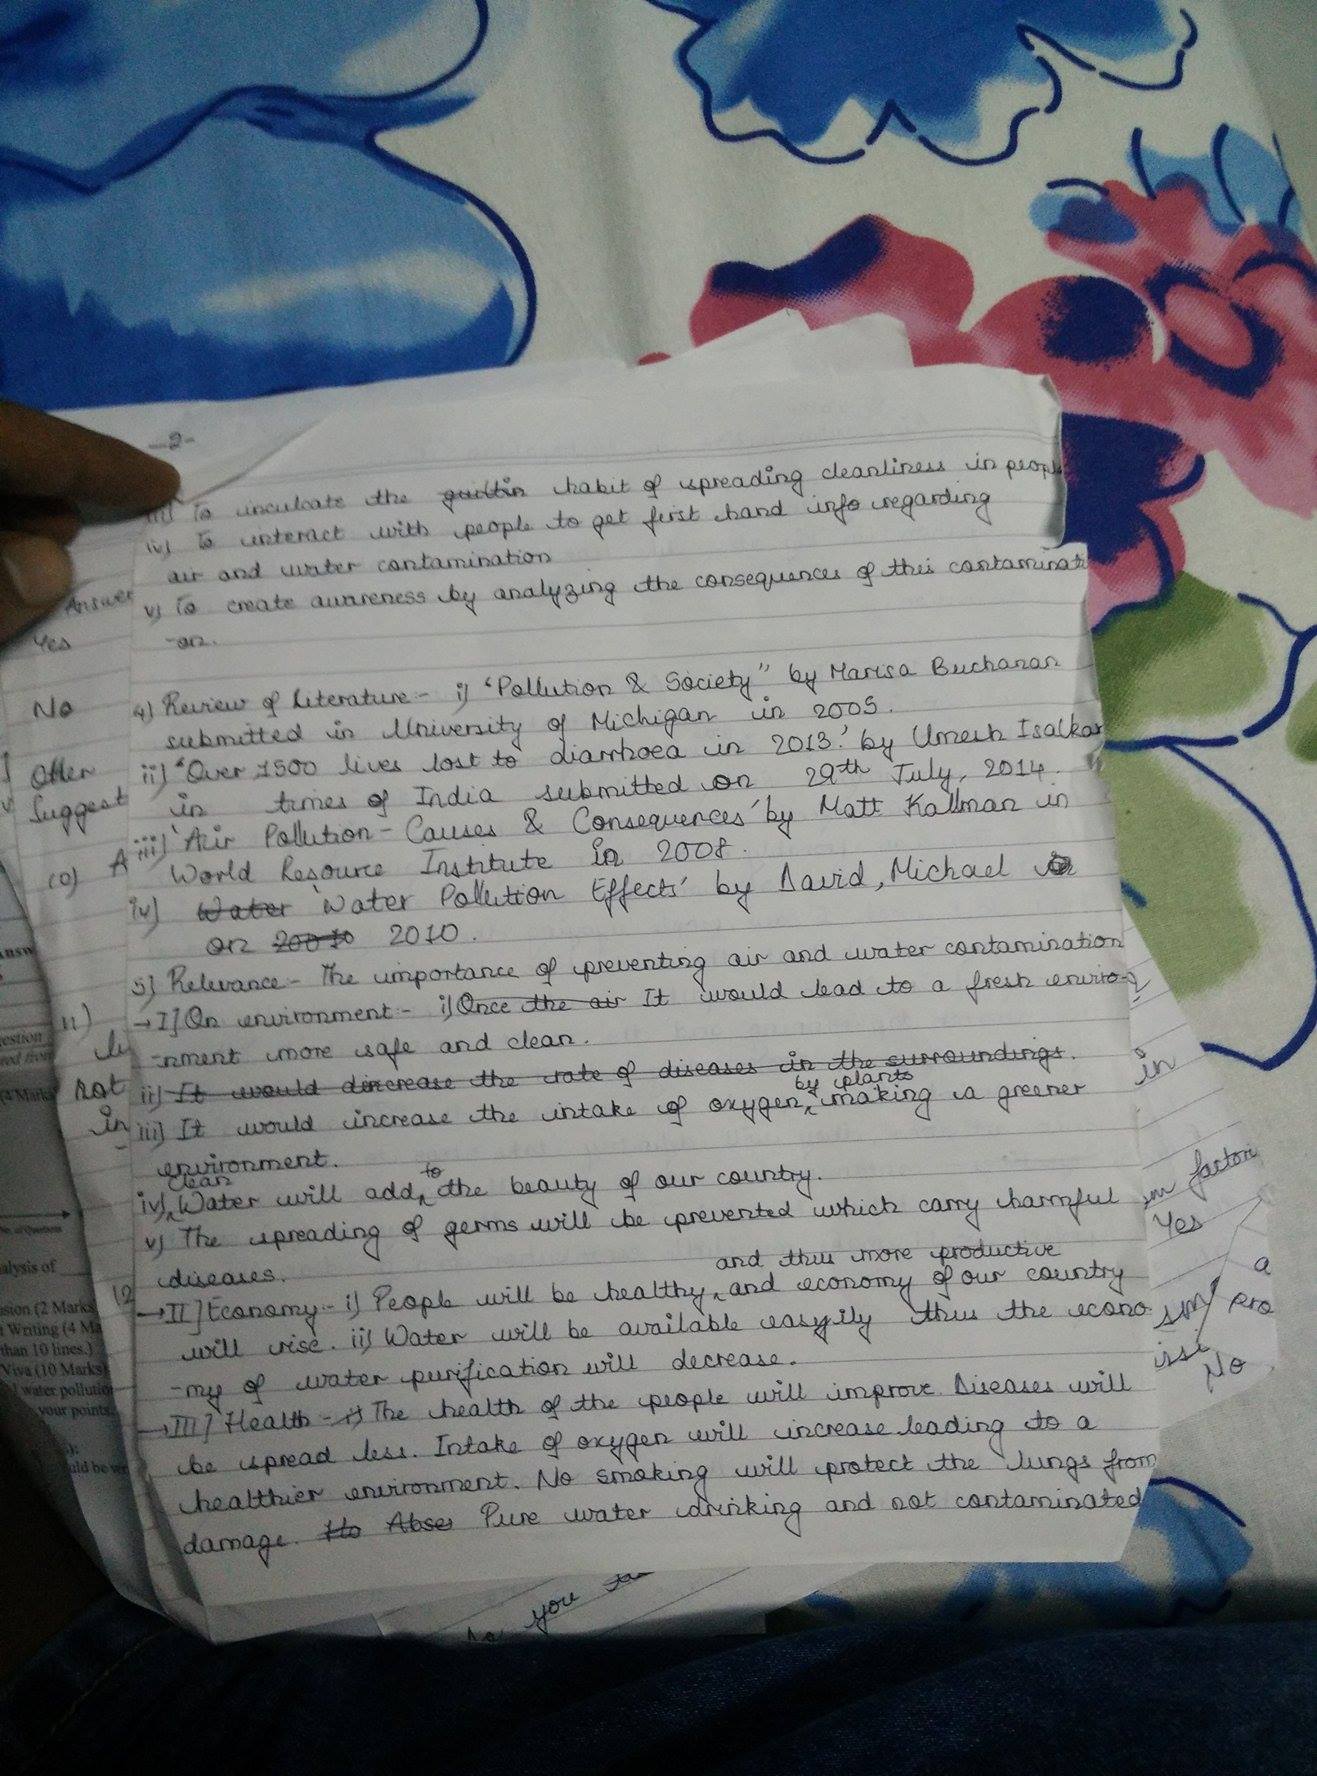 -2-
iii) To inculcate the habit of spreading cleanliness in people
iv) To interact with people to get first hand info regarding
air and water contamination
v) To create awareness by analyzing the consequences of this contaminati
-on.
4) Review of Literature:- i) "Pollution & Society" by Marisa Buchanan
submitted in University of Michigan in 2005.
ii) "Over 1500 lives lost to diarrhoea in 2013.' by Umesh Isalkar
in times of India submitted on 29th July, 2014.
iii) 'Air Pollution - Causes & Consequences' by Matt Kallman in
World Resource Institute in 2008.
iv) Water 'Water Pollution Effects' by David, Michael
on 2010.
5) Relevance - The importance of preventing air and water contamination
→I] On environment - i) Once the air It would lead to a fresh enviro-
-nment more safe and clean.
ii) It would dincrease the rate of diseases in the surroundings.
iii) It would increase the intake of oxygen, by plants making a greener
environment.
iv) Clean Water will add to the beauty of our country.
v) The spreading of germs will be prevented which carry harmful
diseases.
→II] Economy:- i) People will be healthy, and thus more productive and economy of our country
will rise. ii) Water will be available easyily thus the econo
-my of water purification will decrease.
→III] Health - i) The health of the people will improve. Diseases will
be spread less. Intake of oxygen will increase leading to a
healthier environment. No smoking will protect the lungs from
damage. Pure water drinking and not contaminated
Answer
Yes
No
Other
Suggest
(0) A
11)
not
in
12
estion
(4 Mark
No. of Questions
alysis of
sion (2 Marks
t Writing (4 Ma
than 10 lines.)
Viva (10 Marks)
water pollutio
your points.
uld be
in
factor
Yes
a
pro
No
you